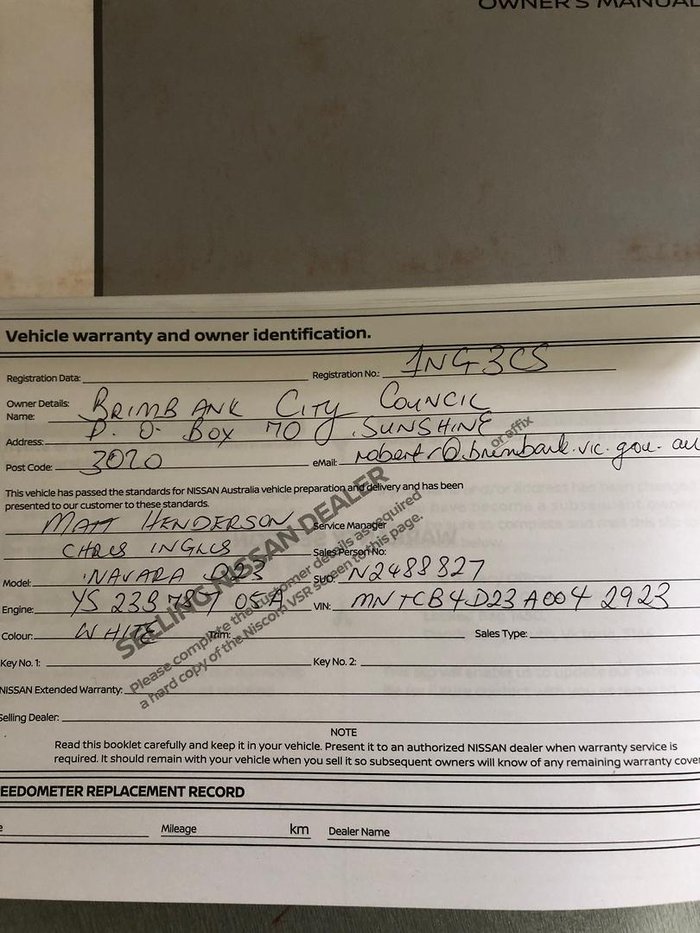 OWNER'S MANUAL
Vehicle warranty and owner identification.
Registration Data: Registration No.: 1NG3CS
Owner Details:
Name: BRIMBANK CITY COUNCIL
Address: P.O. BOX 70 SUNSHINE
Post Code: 3020 eMail: robertr@brimbank.vic.gov.au
This vehicle has passed the standards for NISSAN Australia vehicle preparation and delivery and has been
presented to our customer to these standards.
MATT HENDERSON Service Manager
CHRIS INGLIS Sales Person No:
Model: NAVARA D23 SUO: N2488827
Engine: YS23 05A VIN: MNTCB4D23A0042923
Colour: WHITE Trim: Sales Type:
Key No. 1: Key No. 2:
NISSAN Extended Warranty:
Selling Dealer:
SELLING NISSAN DEALER
Please complete the customer details as required or affix
a hard copy of the Niscom VSR screen to this page.
NOTE
Read this booklet carefully and keep it in your vehicle. Present it to an authorized NISSAN dealer when warranty service is
required. It should remain with your vehicle when you sell it so subsequent owners will know of any remaining warranty cove
EEDOMETER REPLACEMENT RECORD
e Mileage km Dealer Name